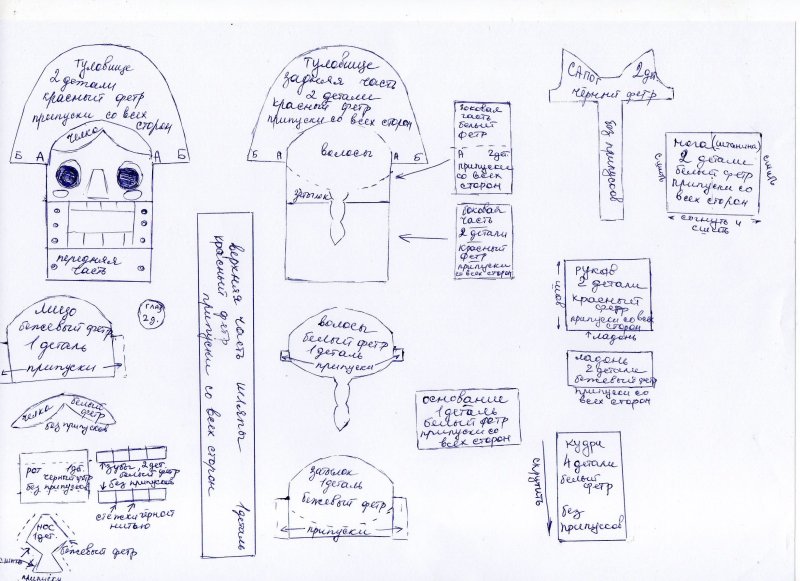 туловище
2 детали
красный фетр
припуски со всех
сторон
челка
Б А А Б
передняя
часть
туловище
задняя часть
2 детали
красный фетр
припуски со всех
сторон
волосы
Б А А Б
затылок
боковая
часть
белый
фетр
А 2дет.
припуски
со всех
сторон
боковая
часть
2 детали
красный
фетр
припуски
со всех сторон
САПОГ 2дет.
чёрный фетр
без припусков
нога (штанина)
2 детали
белый фетр
припуски со
всех сторон
сшить
сшить
согнуть и
сшить
рукав
2 детали
красный
фетр
припуски со всех
сторон
шов
ладонь
ладонь
2 детали
бежевый фетр
припуски со
всех сторон
кудри
4 детали
белый
фетр
без
припусков
скрутить
верхняя часть шляпы 1деталь
красный фетр
припуски со всех сторон
лицо
бежевый фетр
1 деталь
припуски
глаз
2д.
челка белый
фетр
без припусков
рот 1дет.
черный фетр
без припусков
зубы, 2дет.
белый фетр
без припусков
стежки чёрной
нитью
нос
1дет.
бежевый фетр
сшить
припуски
волосы
белый фетр
1деталь
припуски
затылок
1деталь
бежевый фетр
припуски
основание
1 деталь
белый фетр
припуски со
всех сторон